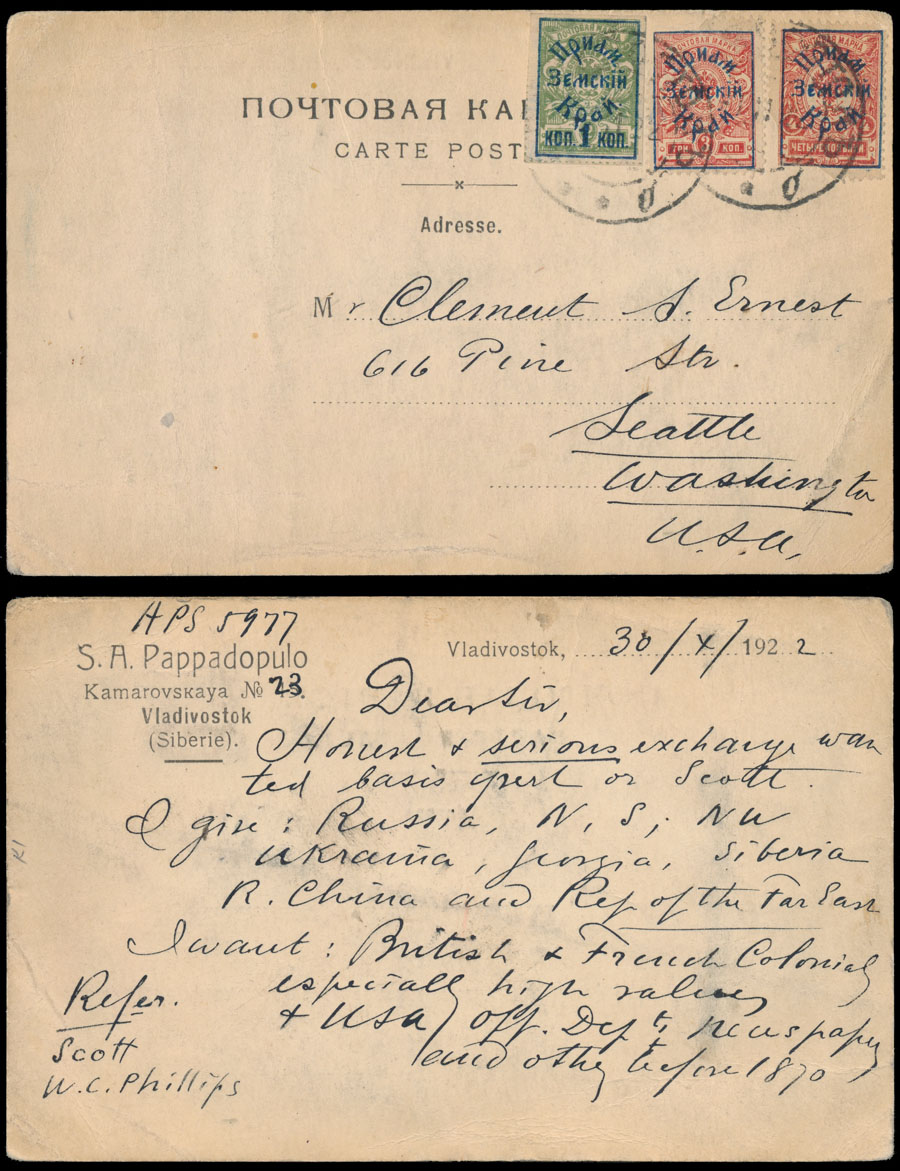 ПОЧТОВАЯ КА
CARTE POST
Приам.
Земскій
Край
КОП. 1 КОП.
ПОЧТОВАЯ МАРКА
Приам.
Земскій
Край
ТРИ 3 КОП.
ПОЧТОВАЯ МАРКА
Приам.
Земскій
Край
4
ЧЕТЫРЕ КОПѢЙКИ
Adresse.
Mr Clement S. Ernest
616 Pine Str.
Seattle
Washington
U.S.A.
APS 5977
S. A. Pappadopulo
Kamarovsкaya № 23
Vladivostok
(Siberie).
Vladivostok, 30/X/ 1922
Dear Sir,
Honest & serious exchange wan
ted basis or Scott.
I give: Russia, N, S, Nu
Ukraina, Georgia, Siberia
R. China and Rep of the Far East
I want: British & French Colonial
especially high values
& USA off. Dept, Newspaper
and other before 1870
Refer.
Scott
W.C. Phillips